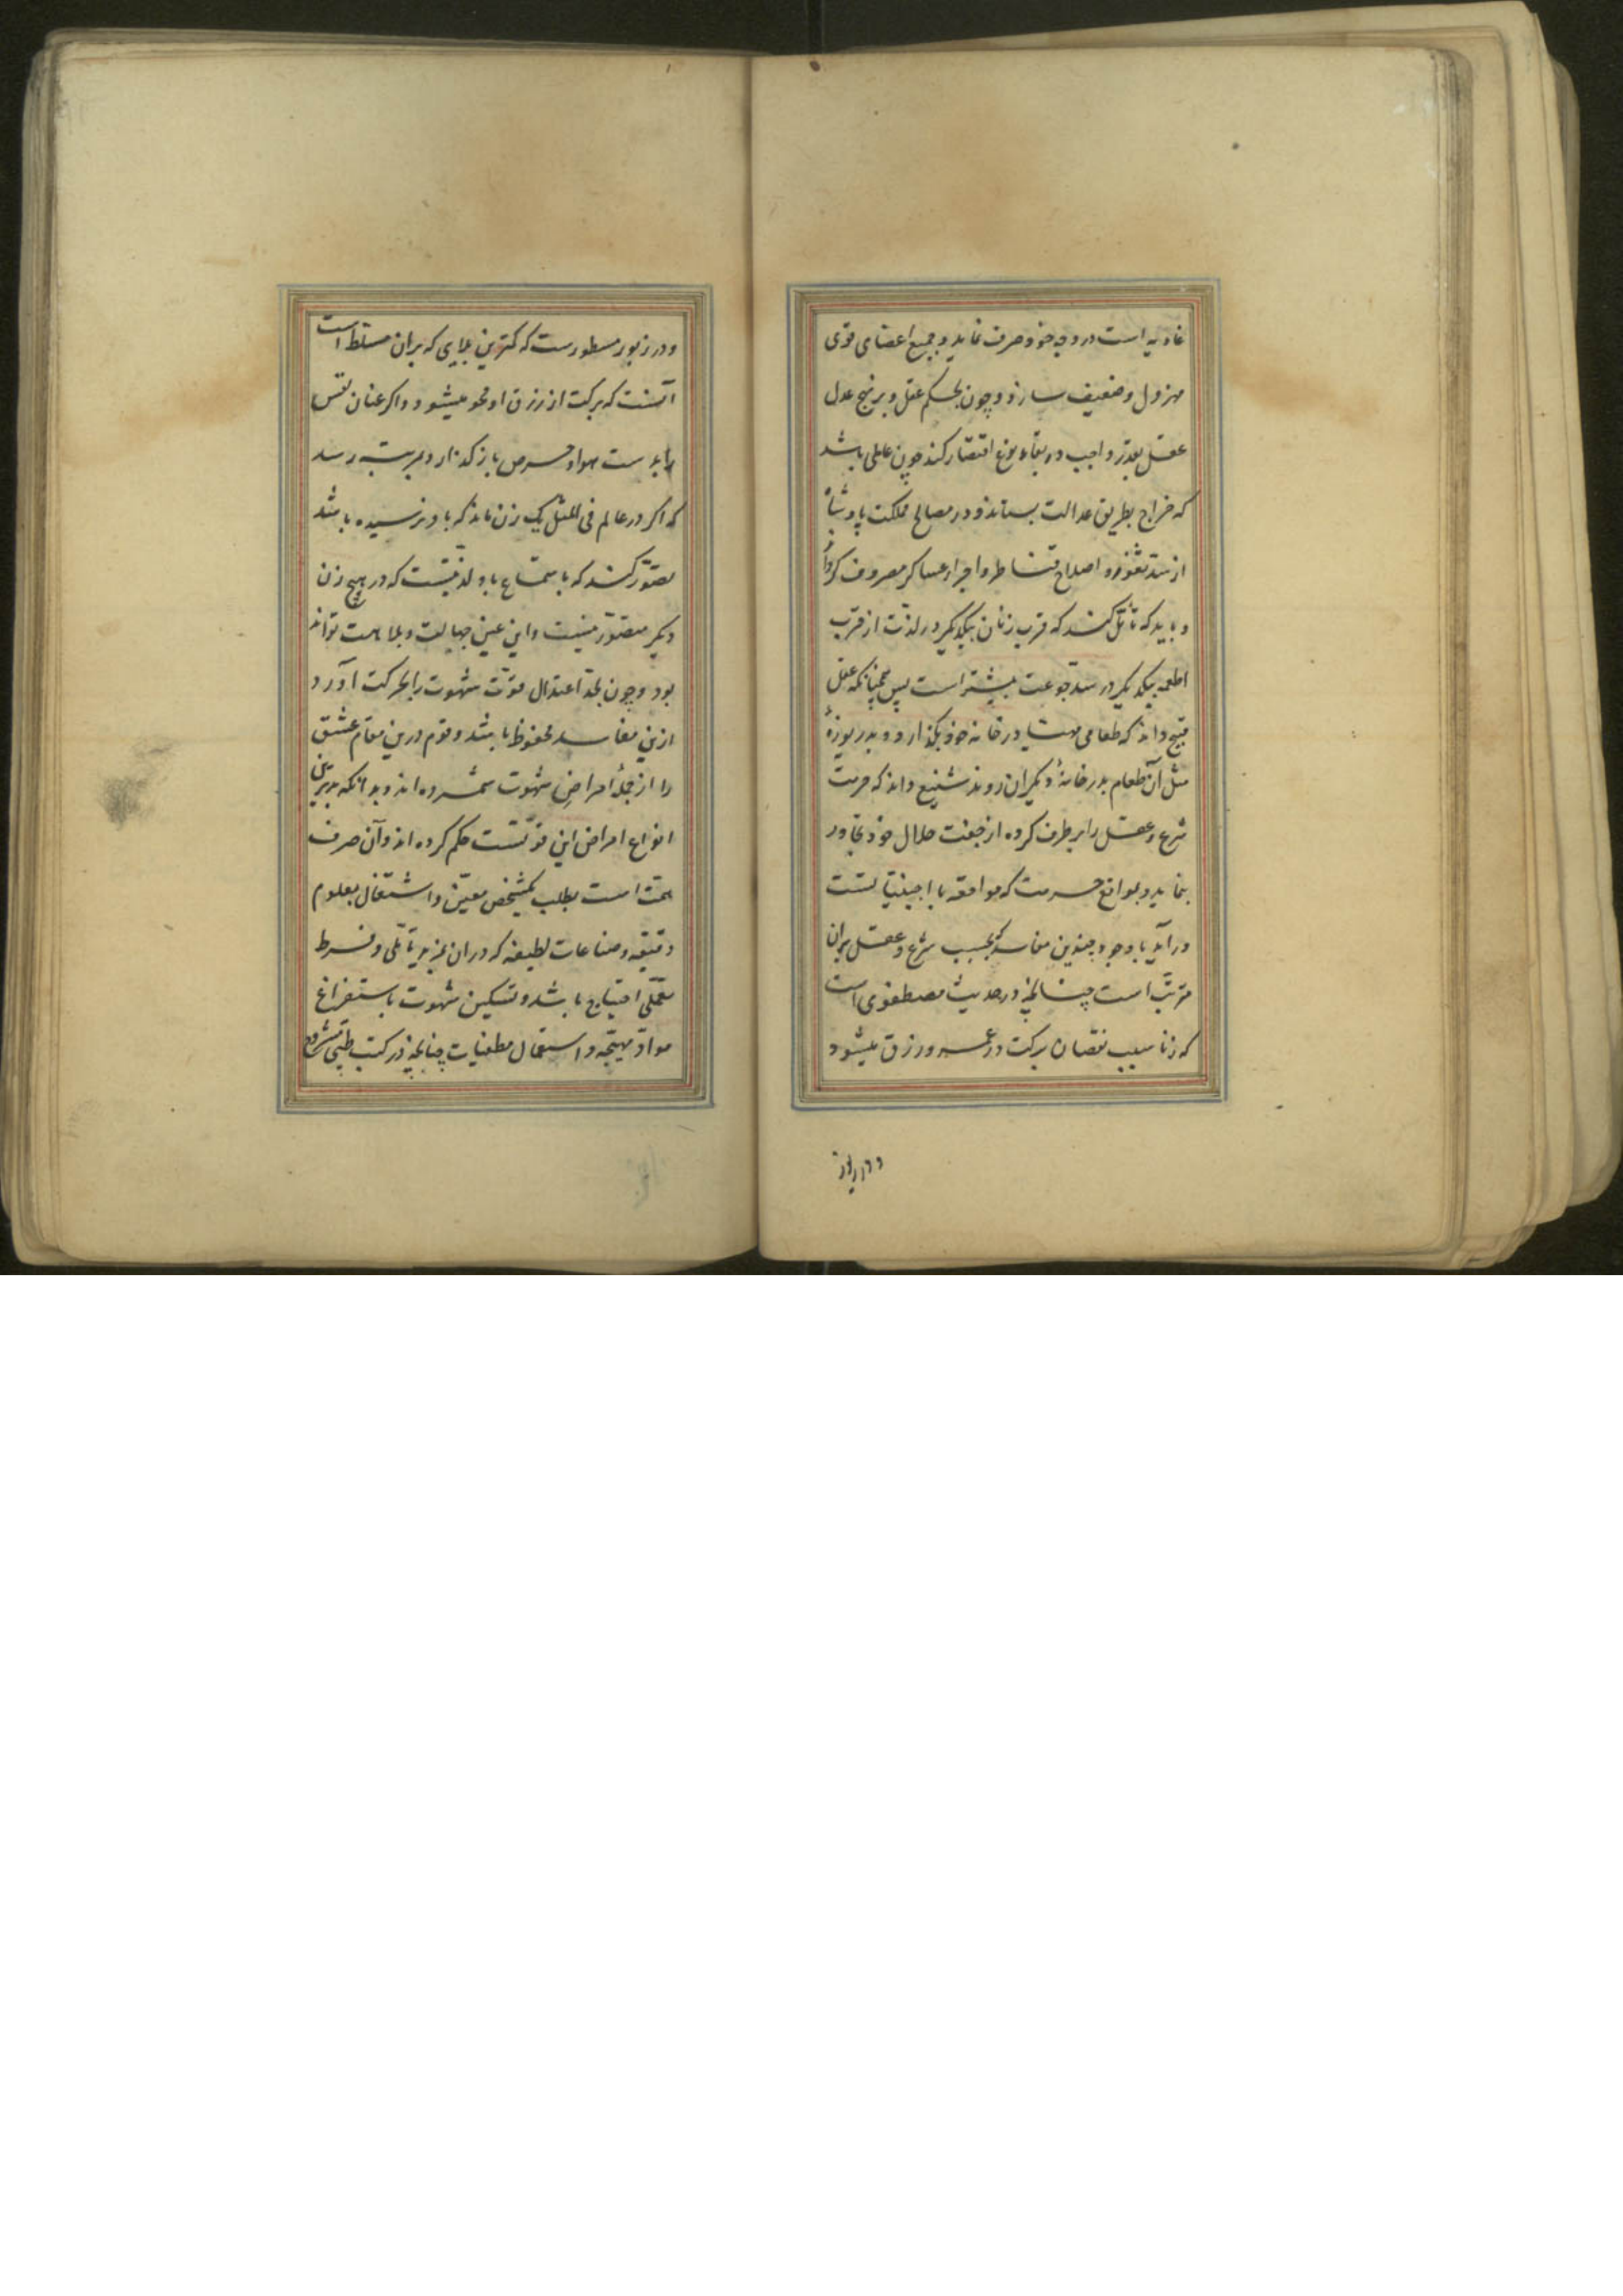 غاذیه است در وجه خود صرف نماید و جمیع اعضای قوی
مهزول و ضعیف سازد و چون بحکم عقل و بر نهج عدل
عقل بقدر واجب در بقاء نوع اقتصار کند چون عاملی باشد
که خراج بطریق عدالت بستاند و در مصالح مملکت پادشاه
از سد ثغور و اصلاح قناطر و اجراء عساکر مصروف کرداند
و باید که تأمل کنند که قرب زنان بیکدیکر در لذت از قرب
اطعمه بیکدیکر در سد جوعت بیشتر است پس همچنانکه عقل
قبیح داند که طعامی مهیا در خانه خود بکذارد و بدریوزهٔ
مثل آن طعام بدر خانهٔ دیکران روند شنیع داند که حرمت
شرع و عقل را بر طرف کرده از جفت حلال خود تجاوز
نماید و بمواقع حرمت که مواقعه با اجنبیاتست
در آید با وجود چندین مفاسد که بحسب شرع و عقل بران
مترتب است چنانچه در حدیث مصطفوی است
که زنا سبب نقصان برکت در عمر و رزق میشود
و در زبور
و در زبور مسطورست که کمترین بلایی که بر ان مسلط است
آنست که برکت از رزق او محو میشود و اکر عنان نفس
را بدست هوا و حرص باز کذارد بمرتبه رسد
که اکر در عالم فی المثل یک زن ماند که باو نرسیده باشد
تصور کند که باستمتاع باو لذتیست که در هیچ زن
دیکر متصور نیست و این عین جهالت و بلاهت تواند
بود و چون بحد اعتدال قوت شهوت را بحرکت آورد
ازین مفاسد محفوظ باشد و قوم درین مقام عشق
را از جملهٔ امراض شهوت شمرده اند و بدانکه بدترین
انواع امراض این قوتست حکم کرده اند و آن صرف
همت است بطلب یکشخص معین و اشتغال بعلوم
دقیقه و صناعات لطیفه که در ان بمزید تأملی و فرط
تعملی احتیاج باشد و تسکین شهوت باستفراغ
مواد مهیجه و استعمال مطفیات چنانچه در کتب طبی مشروح